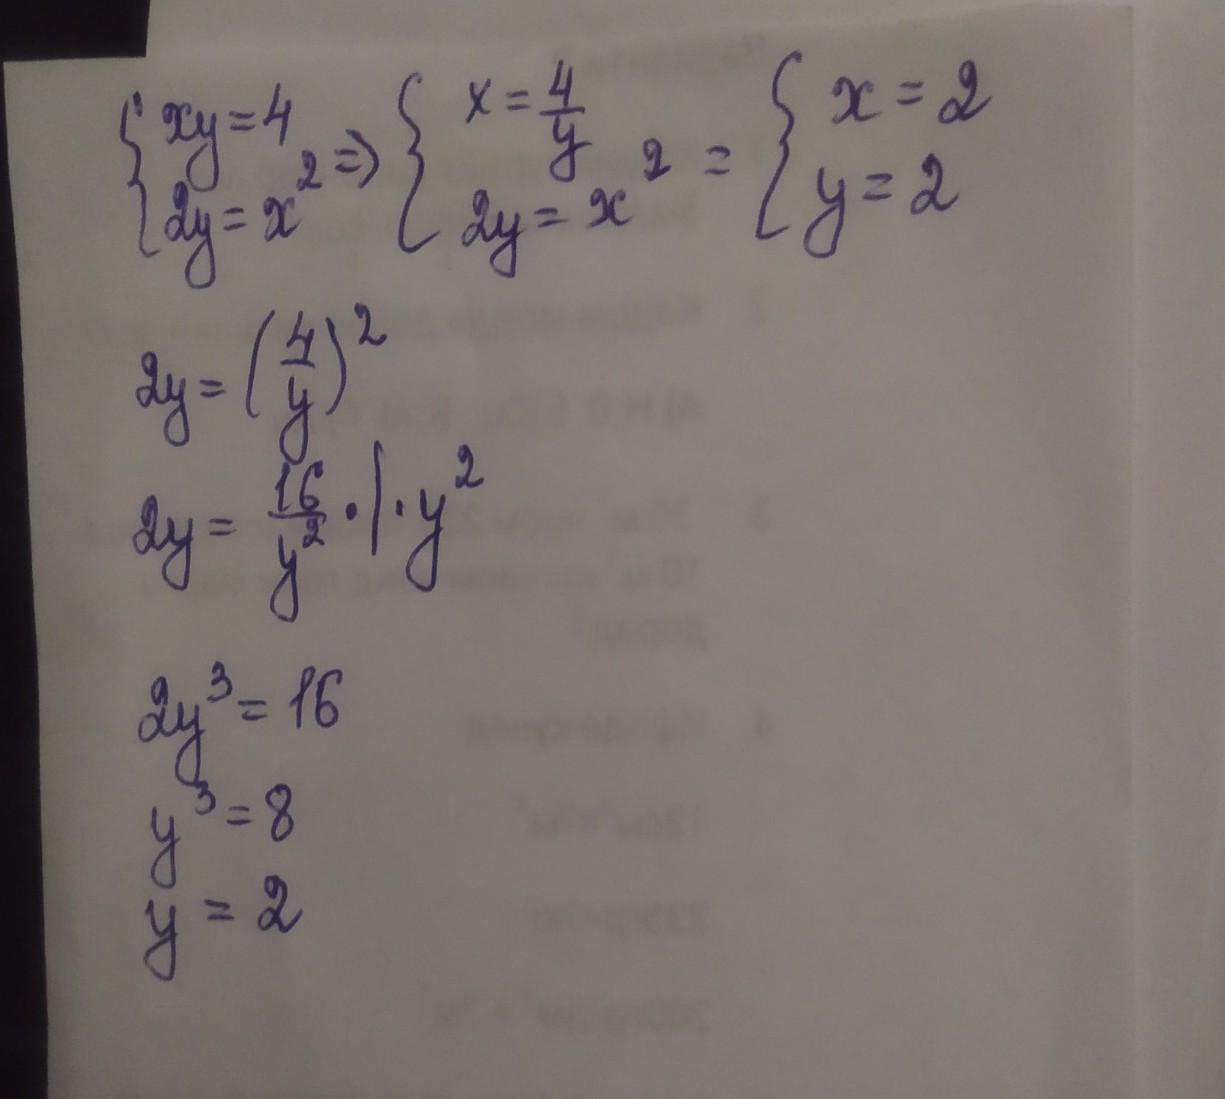 { xy = 4 => { x = 4/y = { x = 2
{ 2y = x² { 2y = x² { y = 2
2y = (4/y)²
2y = 16/y² · | · y²
2y³ = 16
y³ = 8
y = 2